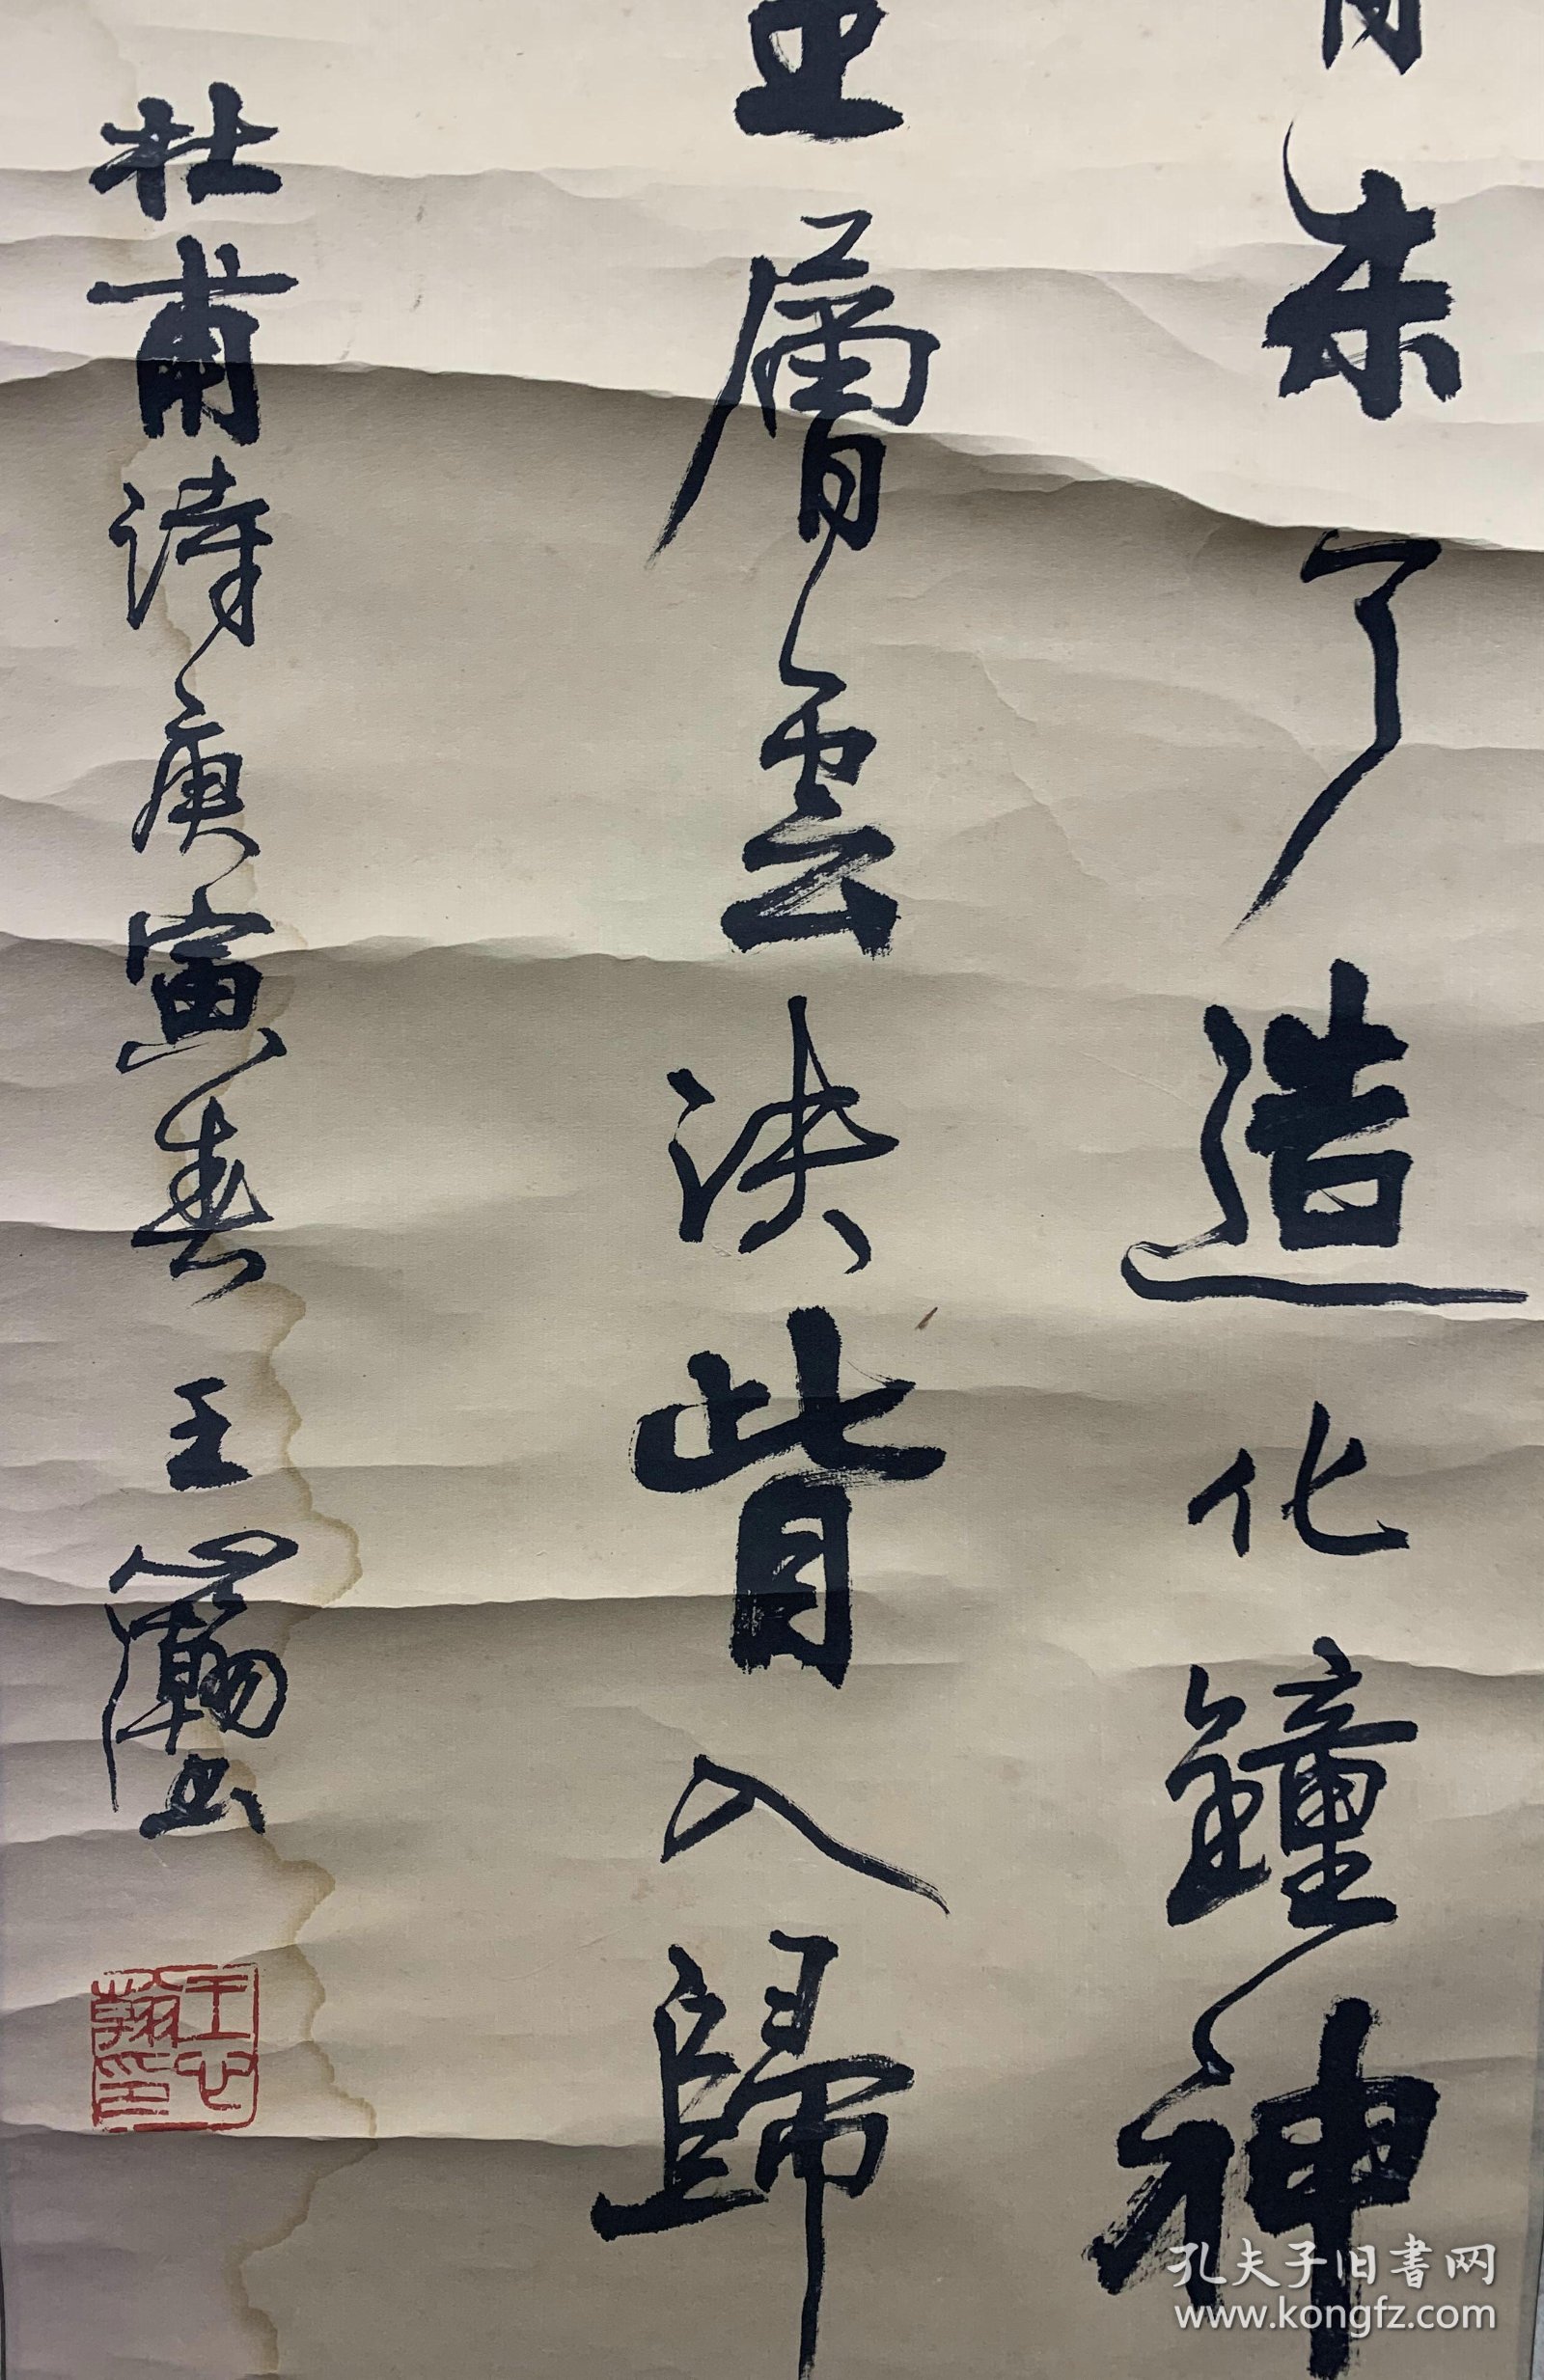 青未了造化鐘神
層雲決眥入歸
杜甫詩庚寅春 王心翰書
王心翰印
孔夫子旧書网
www.kongfz.com